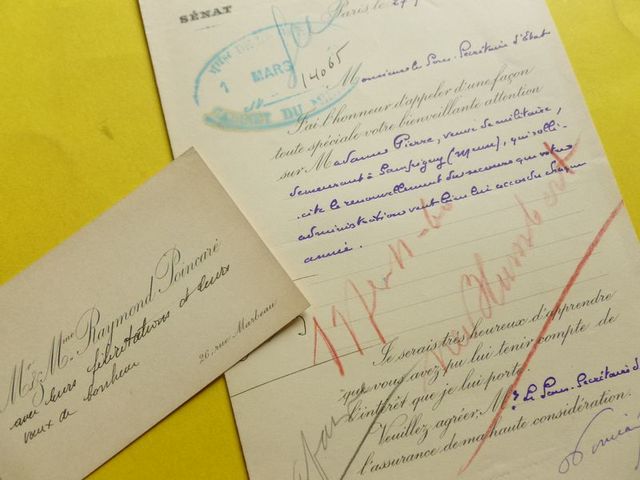 SÉNAT
Paris le 27
MARS
14065
Monsieur le Sous-Secrétaire d'Etat
J'ai l'honneur d'appeler d'une façon
toute spéciale votre bienveillante attention
sur Madame Pierre, veuve de militaire,
demeurant à Sampigny (Meuse), qui solli-
cite le renouvellement du secours que votre
administration veut bien lui accorder chaque
année.
Je serais très heureux d'apprendre
que vous avez pu lui tenir compte de
l'intérêt que je lui porte.
Veuillez agréer, Mr le Sous-Secrétaire d
l'assurance de ma haute considération.
Humbert
Mr & Mme Raymond Poincaré
avec leurs félicitations & leurs
vœux de bonheur
26, rue Marbeau